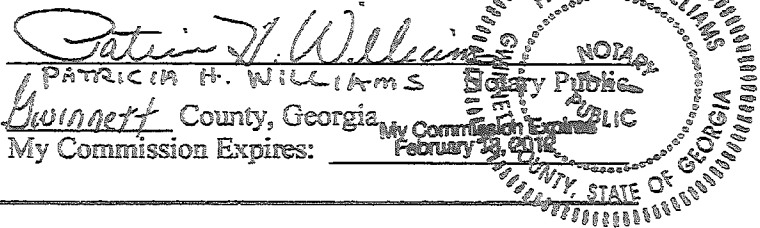 Patricia H. Williams
PATRICIA H. WILLIAMS Notary Public
Gwinnett County, Georgia
My Commission Expires:
My Commission Expires
February 2012
WILLIAMS
NOTARY
PUBLIC
GWINNETT COUNTY, STATE OF GEORGIA